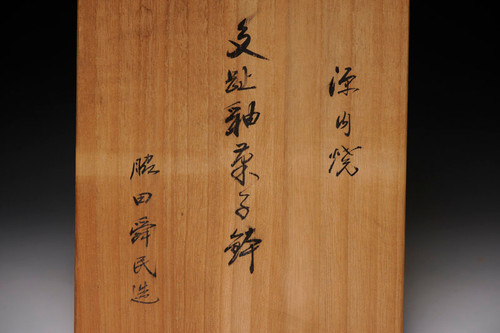 源内焼
交趾釉菓子鉢
脇田舜民造